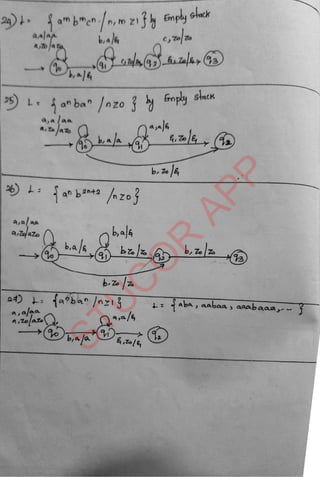 24) L = { aᵐ bᵐ cⁿ / n, m ≥ 1 } by Empty stack
a,a/aa
a,z₀/az₀
b,a/ε
c,z₀/z₀
q₀ b,a/ε q₁ c,z₀/z₀ q₂ ε,z₀/ε q₃
25) L = { aⁿ b aⁿ / n ≥ 0 } by Empty stack
a,a/aa
a,z₀/az₀
a,a/ε
q₀ b,a/a q₁ ε,z₀/ε q₂
b,z₀/ε
26) L = { aⁿ b²ⁿ⁺² / n ≥ 0 }
a,a/aa
a,z₀/az₀
b,a/ε
q₀ b,a/ε q₁ b,z₀/z₀ q₂ b,z₀/z₀ q₃
b,z₀/z₀
27) L = { aⁿ b aⁿ / n ≥ 1 } L = { aba, aabaa, aaabaaa, ... }
a,a/aa
a,z₀/az₀
a,a/ε
q₀ b,a/a q₁ ε,z₀/ε q₂
STUCOR APP